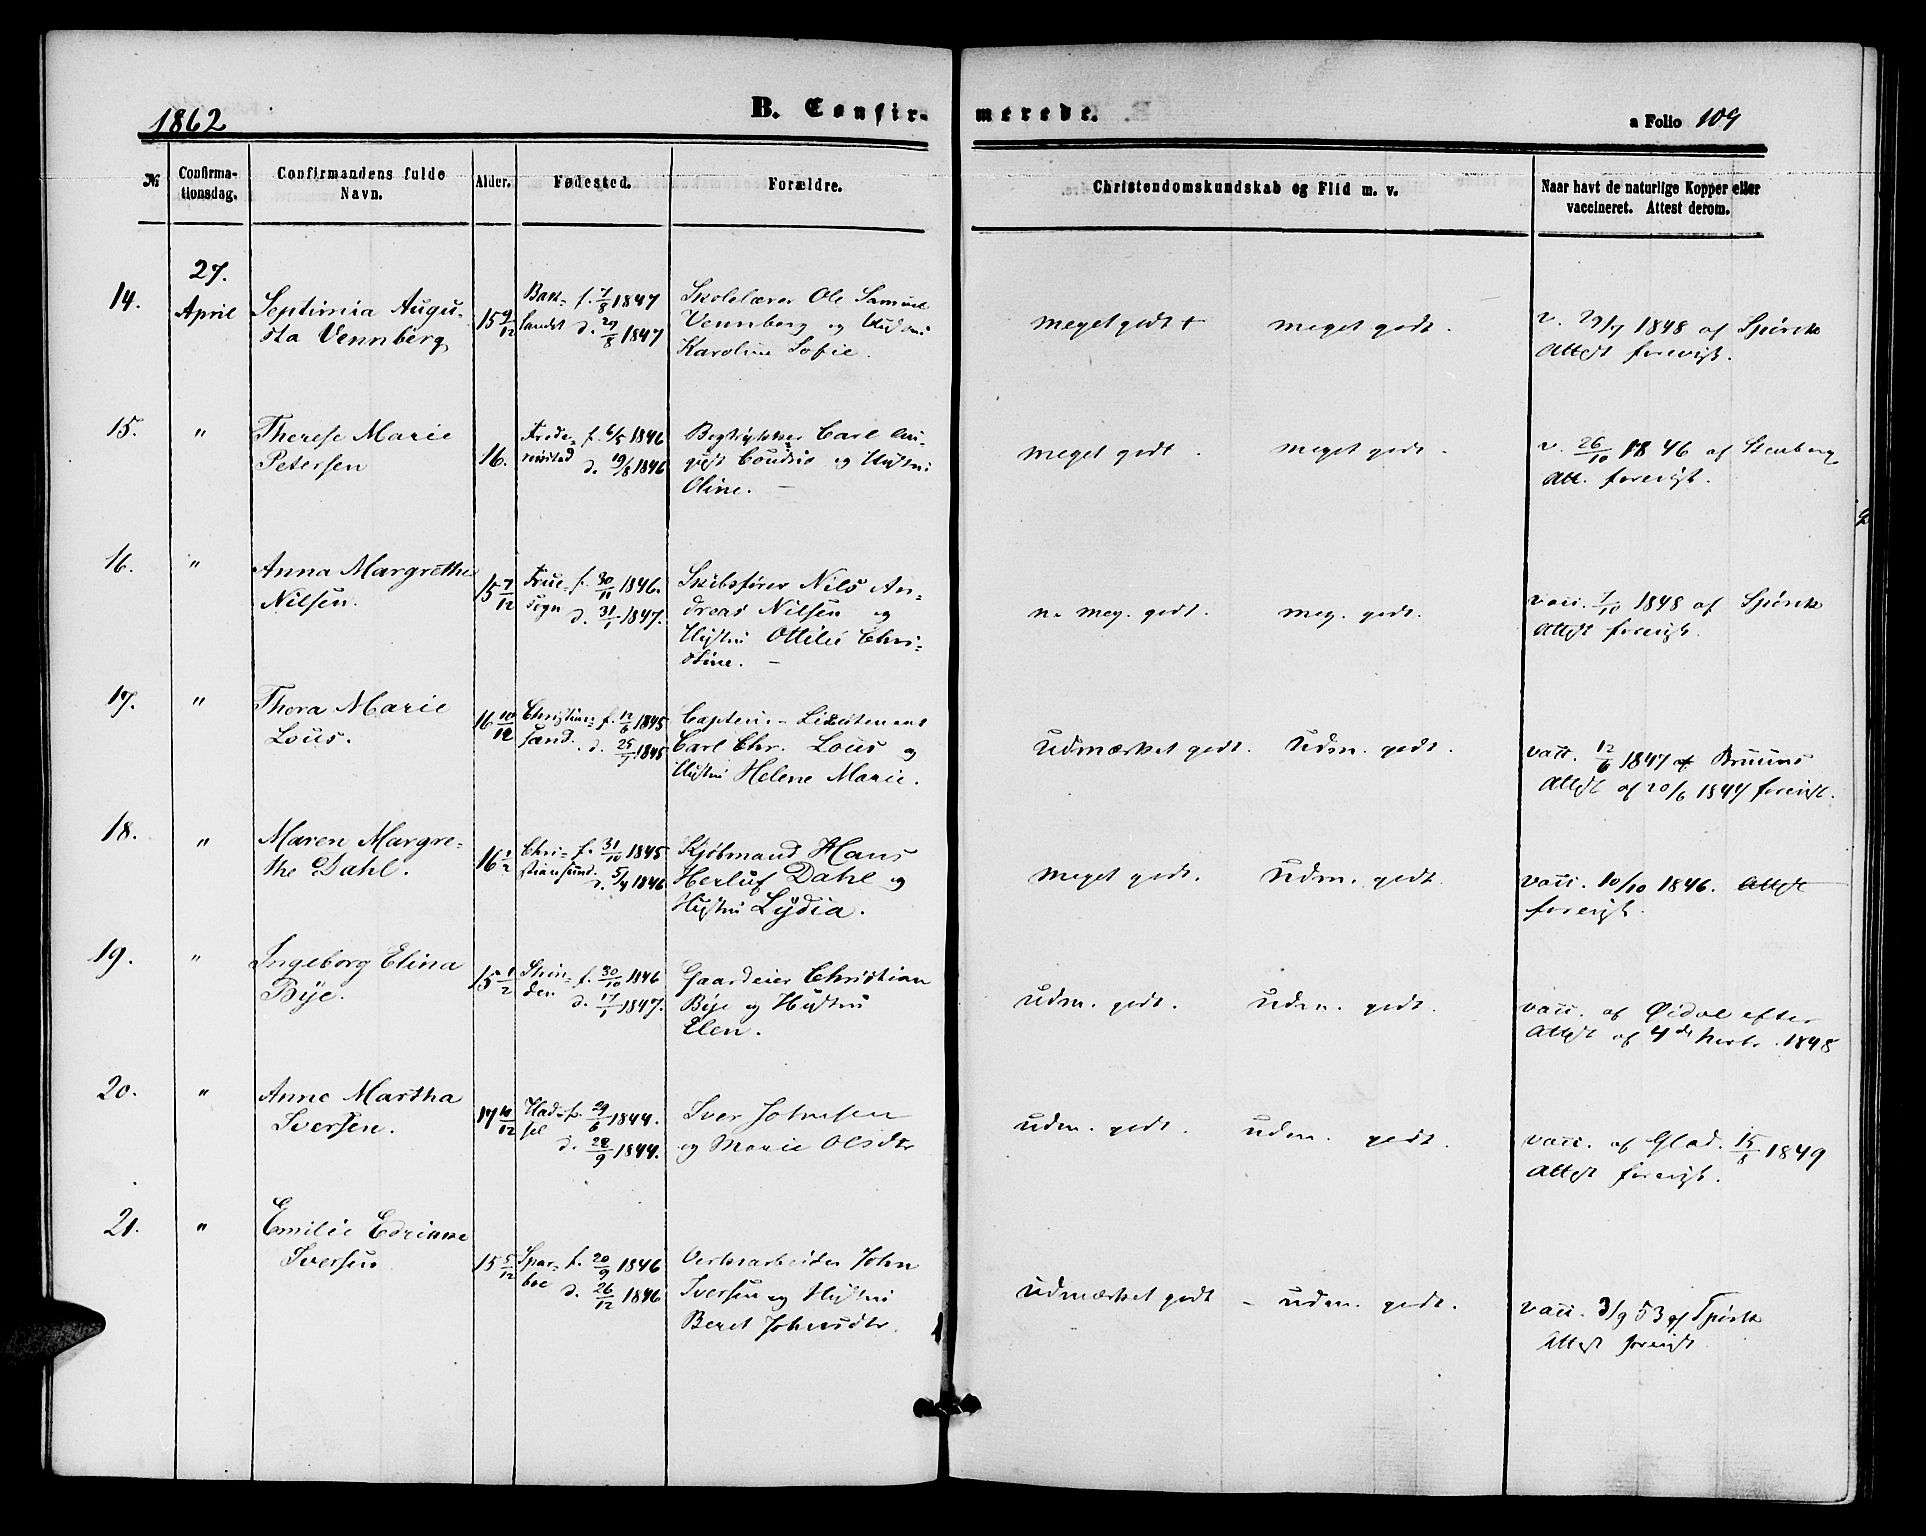 1862
B. Confir-
merede.
a Folio 109
№
Confirma-
tionsdag.
Confirmandens fulde
Navn.
Alder.
Fødested.
Forældre.
Christendomskundskab og Flid m. v.
Naar havt de naturlige Kopper eller
vaccineret. Attest derom.
14.
27.
April
Septimia Augu-
sta Vennberg
15 9/12
Bak- f. 7/8 1847
landet d. 29/8 1847
Skolelærer Ole Samuel
Vennberg og Hustru
Karoline Sofie.
meget godt +
meget godt.
v. 29/7 1848 af Spörck
Attest forevist.
15.
"
Therese Marie
Petersen
16.
Frede- f. 6/5 1846
rikstad d. 19/8 1846
Carl Au-
gust og Hustru
Oline. -
meget godt.
meget godt.
v. 26/10 1846 af Stenberg
Att. forevist.
16.
"
Anna Margrethe
Nilsen.
15 7/12
Frue- f. 30/11 1846.
sogn d. 31/1 1847.
Skibsfører Nils An-
dreas Nilsen og
Hustru Ottilie Chri-
stine. -
n. meg. godt.
meg. godt.
vacc. 7/10 1848 af Spörck
Attest forevist.
17.
"
Thora Marie
Lous.
16 10/12
Christian- f. 12/6 1845
sand. d. 25/7 1845
Captein-Lieutenant
Carl Chr. Lous og
Hustru Helene Marie.
Udmærket godt.
Udm. godt.
vacc. 12/6 1847 af Bruuns
Attest af 20/6 1847 forevist.
18.
"
Maren Margre-
the Dahl.
16 1/2
Chri- f. 31/10 1845
stiansund. d. 5/4 1846
Kjøbmand Hans
Herluf Dahl og
Hustru Lydia.
meget godt.
Udm. godt.
vacc. 10/10 1846. Attest
forevist.
19.
"
Ingeborg Elina
Bye.
15 1/2
Strin- f. 30/10 1846
den d. 17/1 1847.
Gaardeier Christian
Bye og Hustru
Elen.
udm. godt.
udm. godt.
vacc. af Øidal efter
Attest af 4de 1848
20.
"
Anne Martha
Iversen.
17 10/12
Had- f. 29/6 1844.
sel d. 22/9 1844.
Iver Johnsen
og Marie Olsdtr
udm. godt.
udm. godt.
vacc. af Glad. 15/8 1849
Attest forevist.
21.
"
Emilie Edrianne
Iversen
15 5/12
Spar- f. 20/9 1846
boe d. 26/12 1846
John
Iversen og Hustru
Beret Johnsdtr.
Udmærket godt -
udm. godt.
vacc. 3/9 53 af Spörck
Attest forevist